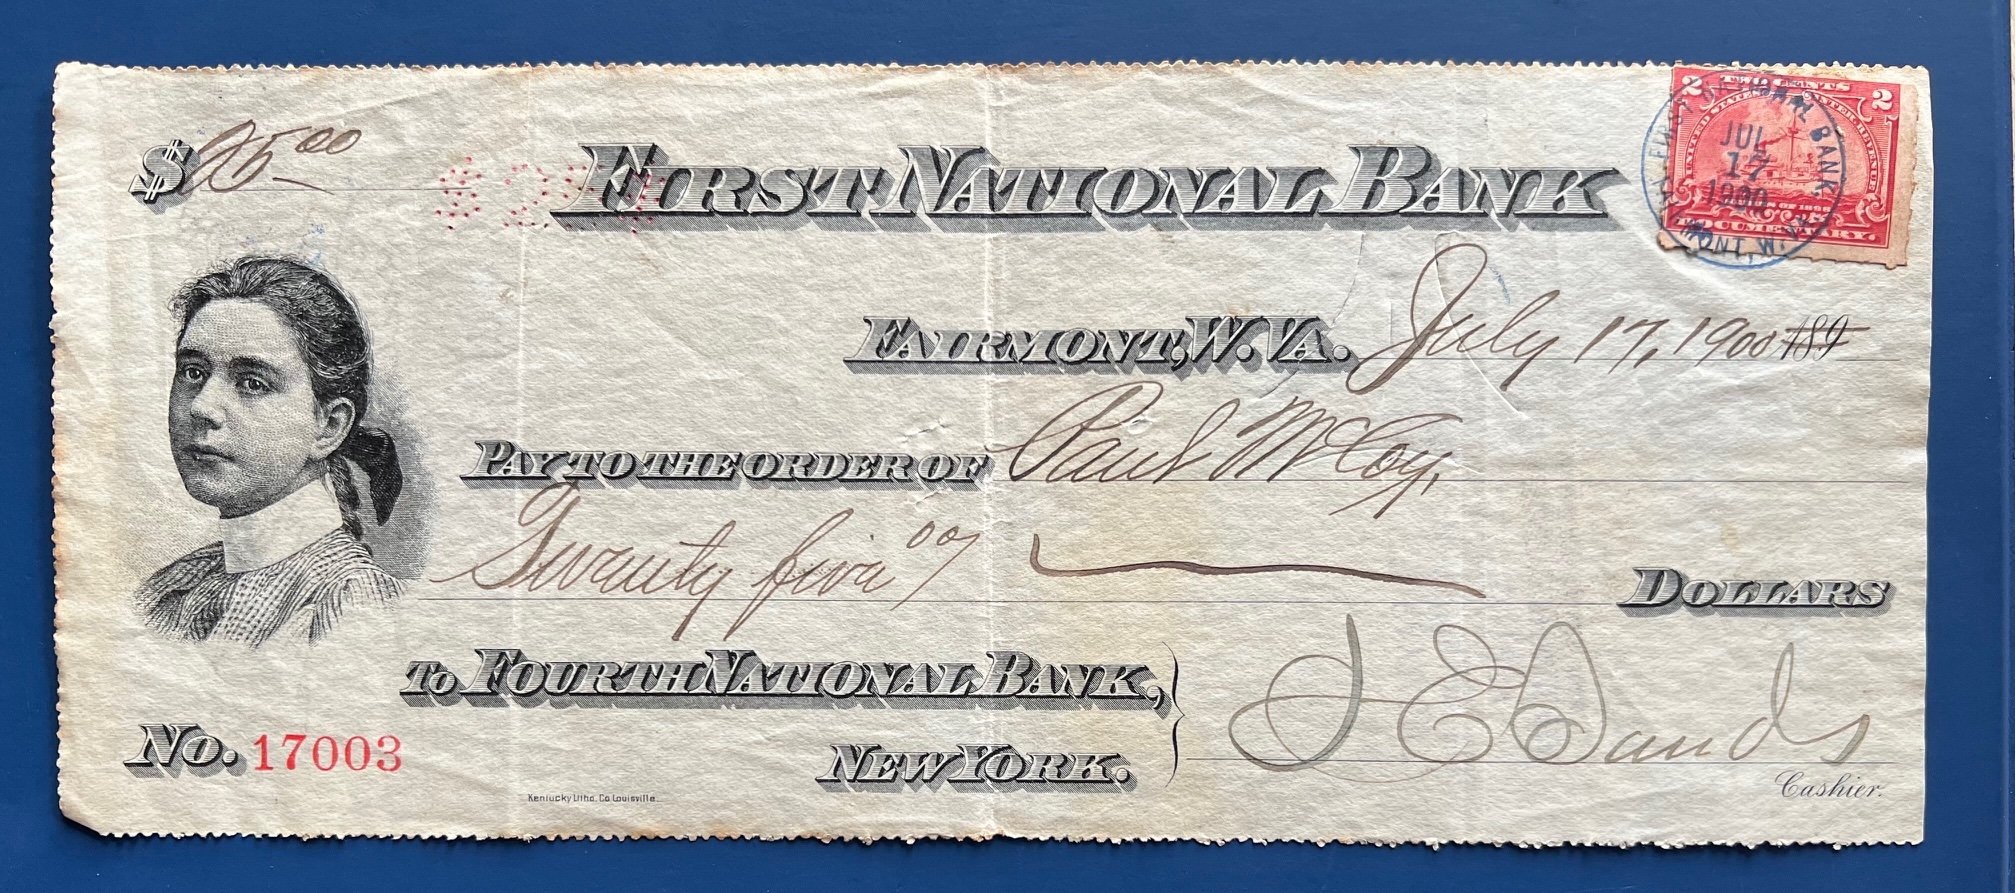 $25.00
FIRST NATIONAL BANK
2 TWO CENTS 2
UNITED STATES INTER. REVENUE
OF 1898
DOCUMENTARY.
FIRST NATIONAL BANK
JUL
17
1900
FAIRMONT, W. VA.
FAIRMONT, W. VA. July 17, 1900 189
PAY TO THE ORDER OF Paul McCoy,
Twenty five 00/ DOLLARS
TO FOURTH NATIONAL BANK,
NEW YORK.
No. 17003
J E Sands
Cashier.
Kentucky Litho. Co Louisville.